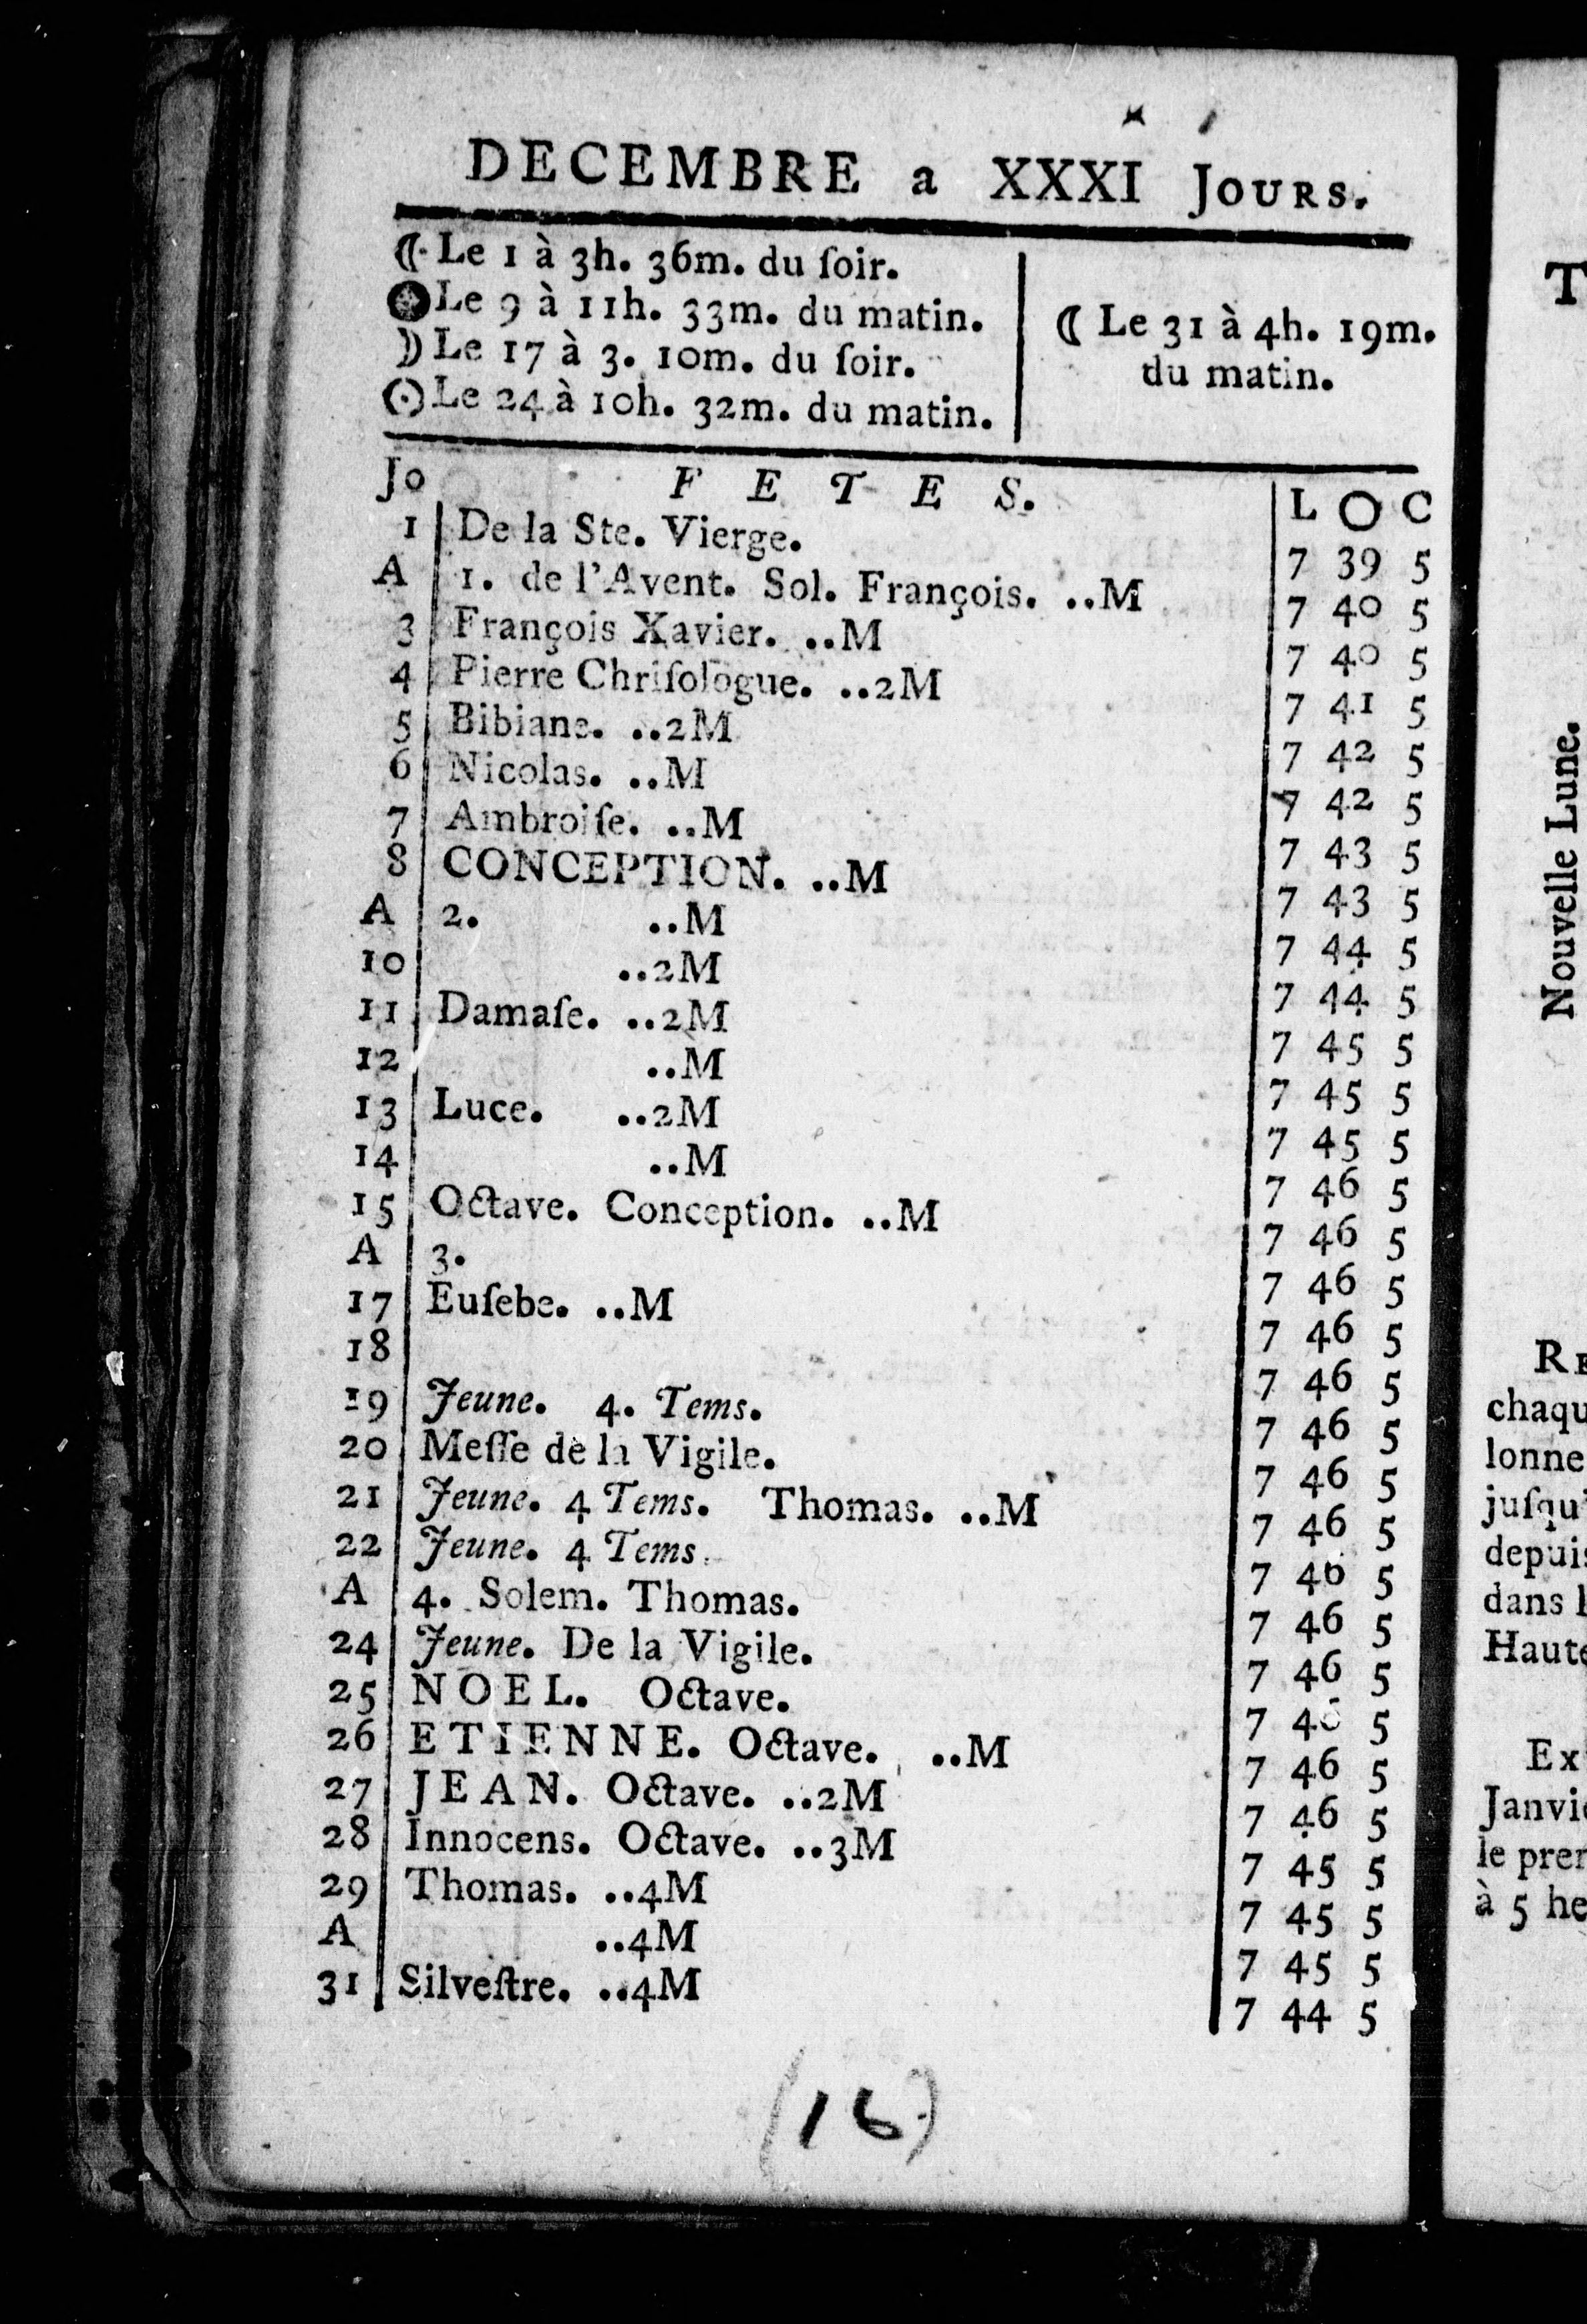 DECEMBRE a XXXI JOURS.
☾ Le 1 à 3h. 36m. du ſoir.
● Le 9 à 11h. 33m. du matin.
☽ Le 17 à 3. 10m. du ſoir.
☉ Le 24 à 10h. 32m. du matin.
☾ Le 31 à 4h. 19m.
du matin.
Jo FETES. L O C
1 De la Ste. Vierge. 7 39 5
A 1. de l'Avent. Sol. François. ..M 7 40 5
3 François Xavier. ..M 7 40 5
4 Pierre Chriſologue. ..2M 7 41 5
5 Bibiane. ..2M 7 42 5
6 Nicolas. ..M 7 42 5
7 Ambroiſe. ..M 7 43 5
8 CONCEPTION. ..M 7 43 5
A 2. ..M 7 44 5
10 ..2M 7 44 5
11 Damaſe. ..2M 7 45 5
12 ..M 7 45 5
13 Luce. ..2M 7 45 5
14 ..M 7 46 5
15 Octave. Conception. ..M 7 46 5
A 3. 7 46 5
17 Euſebe. ..M 7 46 5
18 7 46 5
19 Jeune. 4. Tems. 7 46 5
20 Meſſe de la Vigile. 7 46 5
21 Jeune. 4 Tems. Thomas. ..M 7 46 5
22 Jeune. 4 Tems. 7 46 5
A 4. Solem. Thomas. 7 46 5
24 Jeune. De la Vigile. 7 46 5
25 NOEL. Octave. 7 46 5
26 ETIENNE. Octave. ..M 7 46 5
27 JEAN. Octave. ..2M 7 46 5
28 Innocens. Octave. ..3M 7 45 5
29 Thomas. ..4M 7 45 5
A ..4M 7 45 5
31 Silveſtre. ..4M 7 44 5
(16)
T
Nouvelle Lune.
RE
chaqu
lonne
juſqu'
depuis
dans l
Haute
Ex
Janvie
le prem
à 5 he